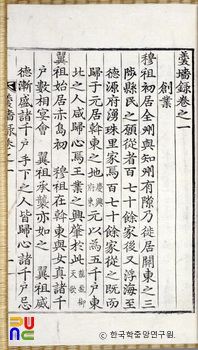 羹墻錄卷之一
創業
穆祖初居全州與知州有隙乃徙居關東之三
陟縣民之願從者百七十餘家後又浮海至
德源府湧珠里家焉百七十餘家從之旣而
歸于元居斡東之地慶興府東元以爲五千戶東
北之人咸歸心焉王業之興肇於此龍飛御天歌
翼祖始居赤島初 穆祖在斡東與女真諸千
戶數相宴會 翼祖承襲亦如之 翼祖威
德漸盛諸千戶手下之人皆歸心諸千戶忌
羹墻錄卷之一
ⓒ 한국학중앙연구원.